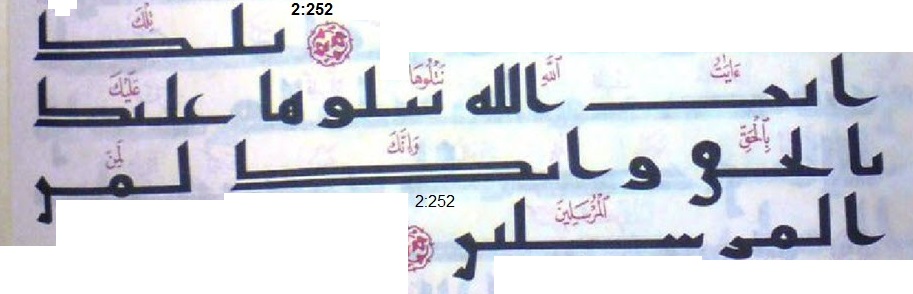 2:252
تِلْكَ
تلك
ءَايَٰتُ ٱللَّهِ نَتْلُوهَا عَلَيْكَ
ايت الله نتلوها عليك
بِٱلْحَقِّ وَإِنَّكَ لَمِنَ
بالحق وانك لمن
2:252
ٱلْمُرْسَلِينَ
المرسلين